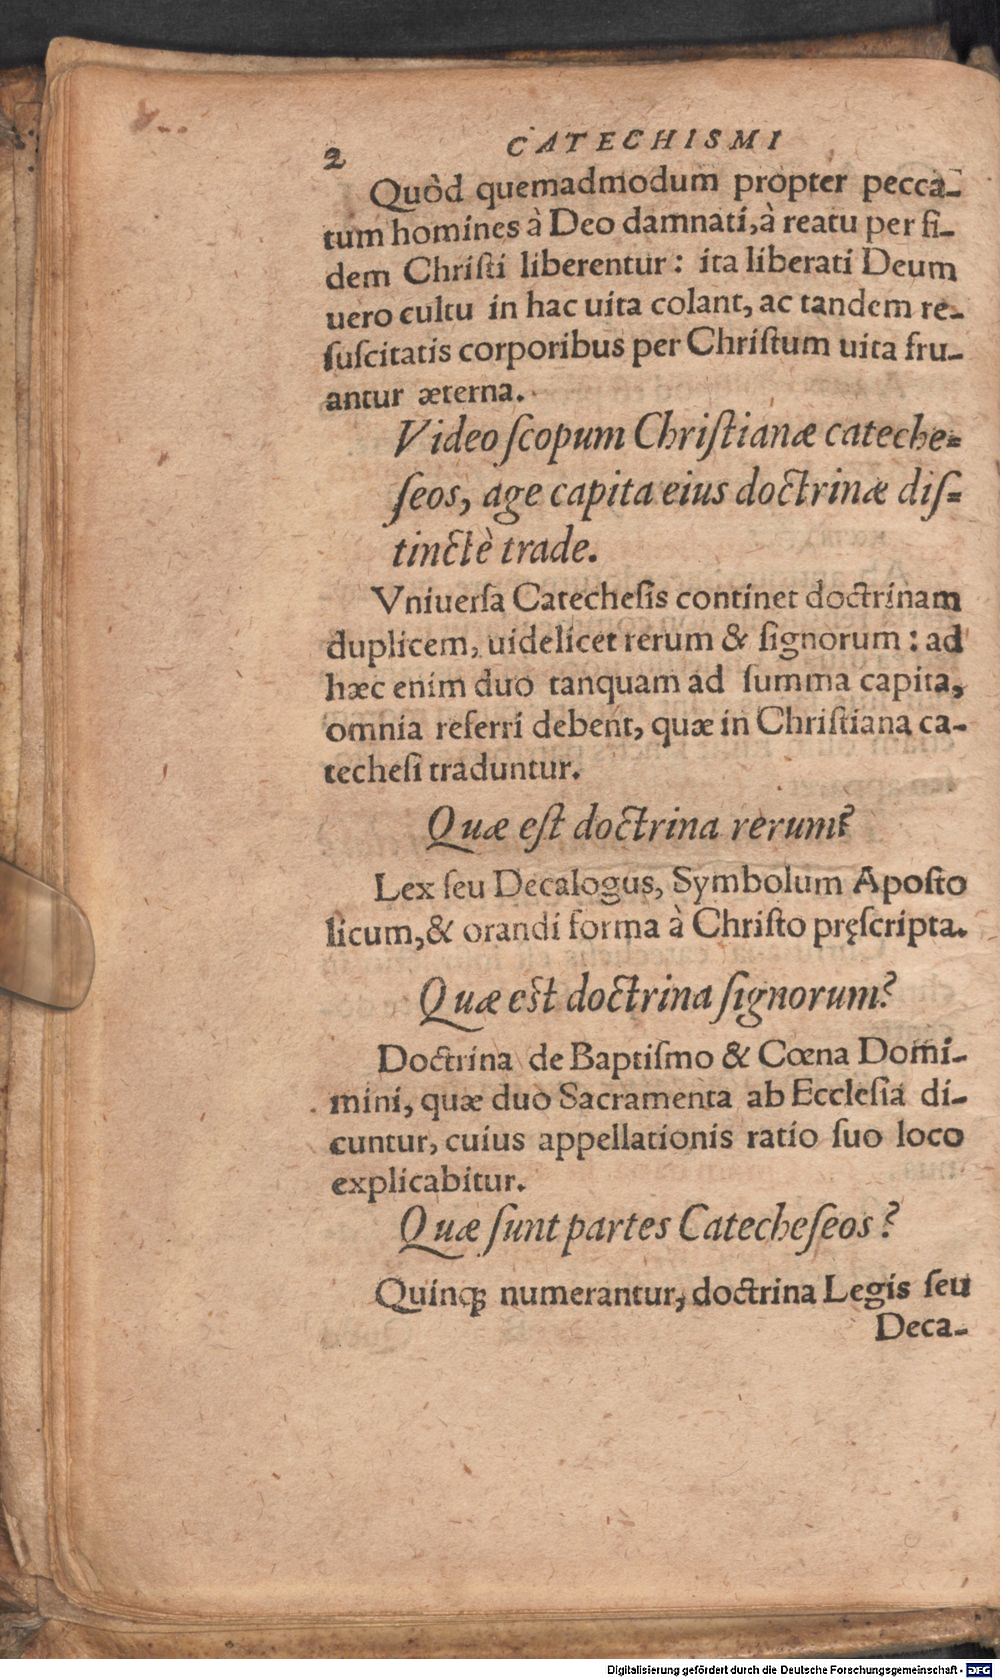 2 CATECHISMI
Quòd quemadmodum propter pecca-
tum homines à Deo damnati, à reatu per fi-
dem Christi liberentur: ita liberati Deum
uero cultu in hac uita colant, ac tandem re-
suscitatis corporibus per Christum uita fru-
antur æterna.
Video scopum Christianæ cateche-
seos, age capita eius doctrinæ dis-
tinctè trade.
Vniuersa Catechesis continet doctrinam
duplicem, uidelicet rerum & signorum: ad
hæc enim duo tanquam ad summa capita,
omnia referri debent, quæ in Christiana ca-
techesi traduntur.
Quæ est doctrina rerum?
Lex seu Decalogus, Symbolum Aposto
licum, & orandi forma à Christo pręscripta.
Quæ est doctrina signorum?
Doctrina de Baptismo & Cœna Domi-
mini, quæ duo Sacramenta ab Ecclesia di-
cuntur, cuius appellationis ratio suo loco
explicabitur.
Quæ sunt partes Catecheseos?
Quinqꝫ numerantur, doctrina Legis seu
Deca-
Digitalisierung gefördert durch die Deutsche Forschungsgemeinschaft - DFG